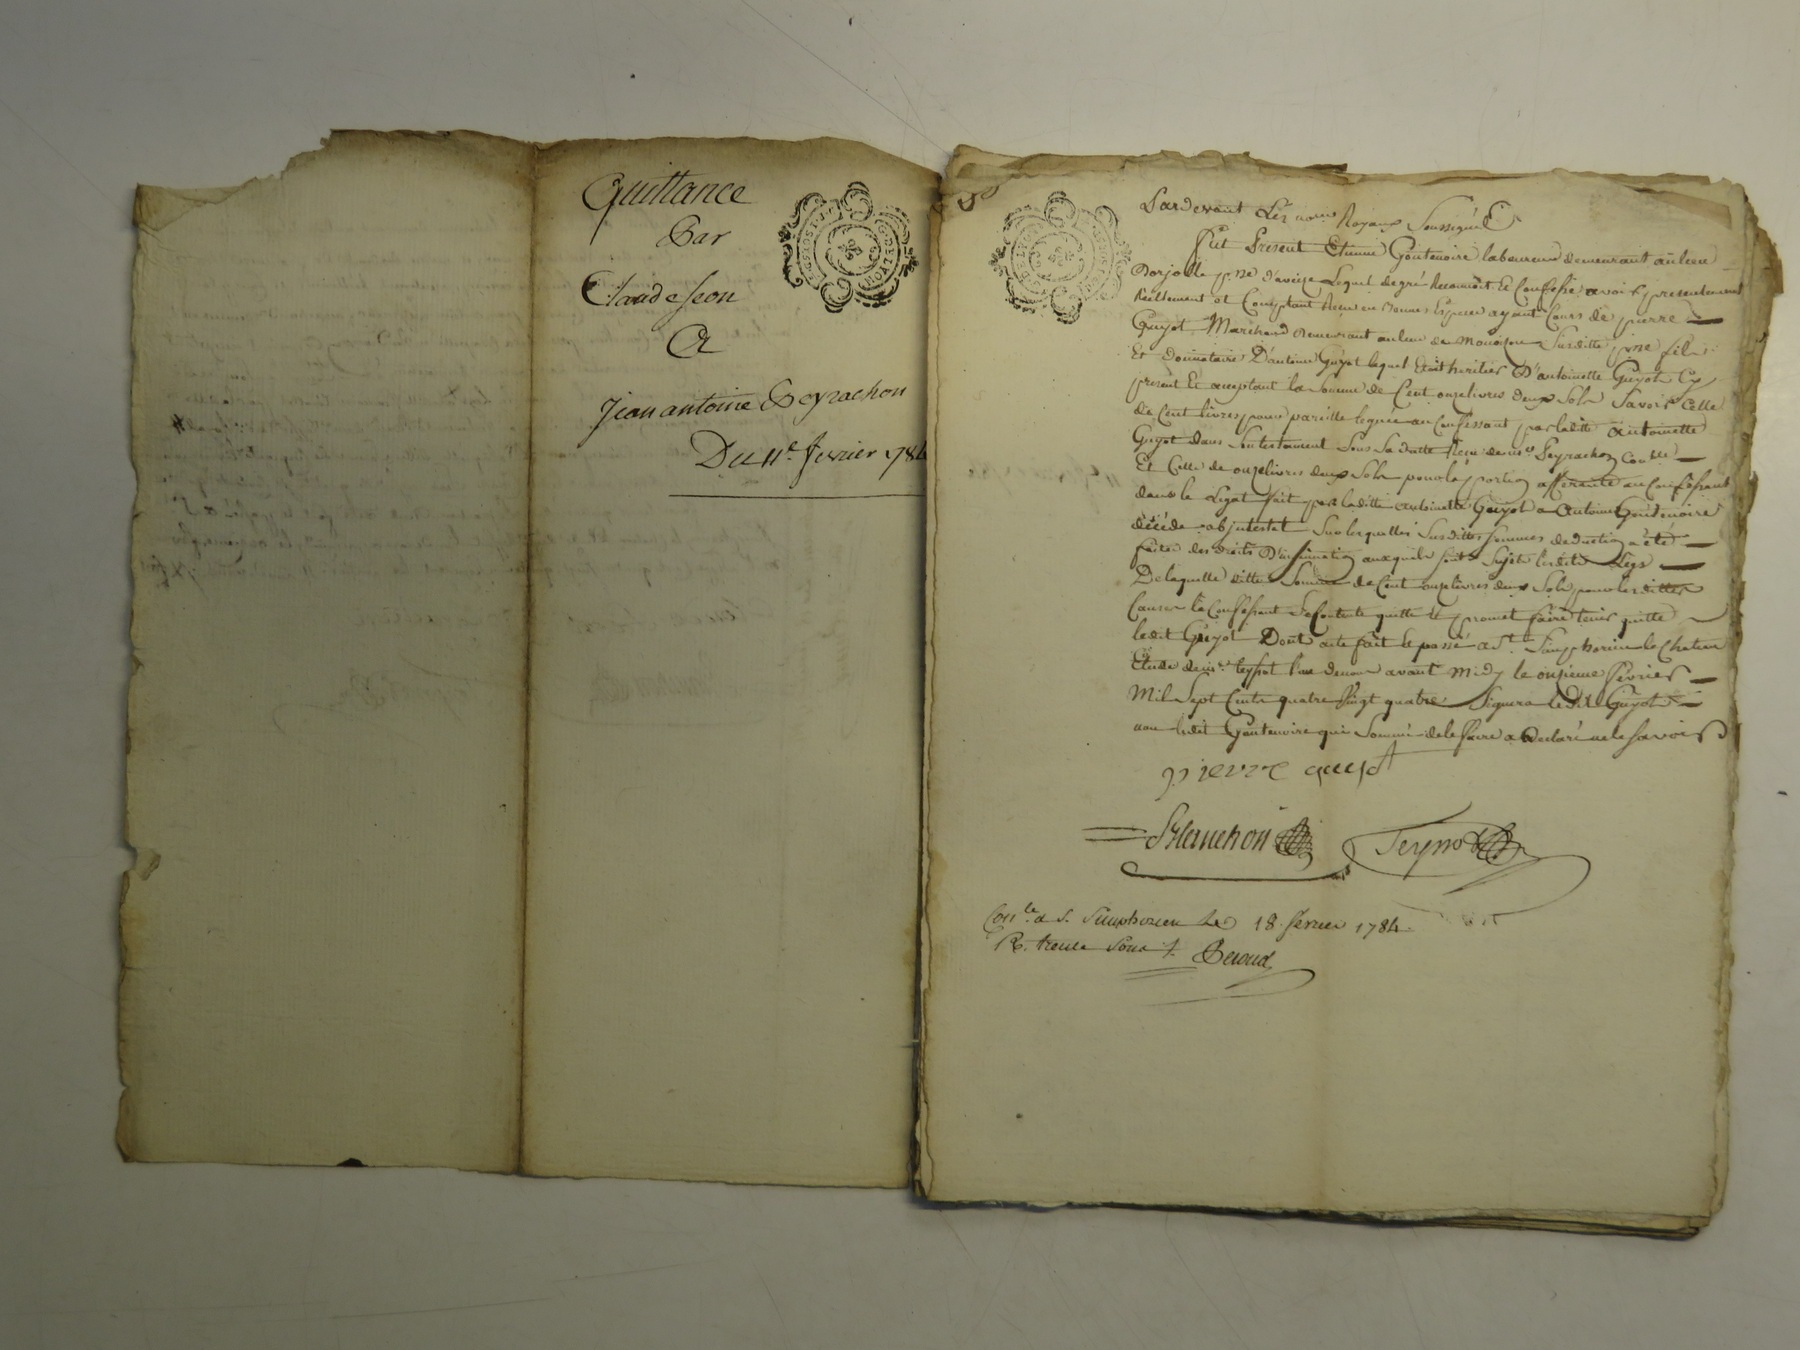 Quittance
Par
Claude Jeon
A
Jean antoine Peyrachon
Du 11e. fevrier 1784
Pardevant Les notres Royaux Soussignés
Fut Present Etienne Goutenoire laboureur demeurant au lieu
Dorjolle psse d'aveize Lequel de gré Reconnoit Et Confesse avoir presentement
Reellement et Comptant Receu en Bonnes Especes ayant Cours de pierre
Guyot Marchand demeurant au lieu de Susditte psse fils
Et donnataire D'antoine Guyot lequel Etoit heritier D'antoinette Guyot Cy
present Et acceptant la Somme de Cent onze livres deux Sols Savoir Celle
de Cent livres pour pareille leguée au Confessant par laditte Antoinette
Guyot dans Son testament Sous Sa datte Reçu de me. Peyrachon Con.lle
Et Celle de onze livres deux Sols pour la portion afferante au Confessant
dans le Legat fait par laditte Antoinette Guyot a Antoine Goutenoire
décédé abjntestat Sur lesquelles Susdittes Sommes deduction a été
faite des droits D'insinuation auxquels sont Sujets lesdits Legs
De laquelle ditte Somme de Cent onze livres deux Sols pour lesdittes
Causes le Confessant Se Contente quitte Et promet faire tenir quitte
ledit Guyot Dont acte fait Et passé a St. Simphorien le Chateau
Etude de me. teyssot l'un de nous avant Midy le onzieme fevrier
Mil Sept Cents quatre Vingt quatre Signera ledit Guyot Et
non ledit Goutenoire qui Sommé de le faire a Declaré ne le Savoir
pierre guyot
Blanchon Teyssot
Con.le a S. Simphorien Le 18 fevrier 1784.
R. treize Sous